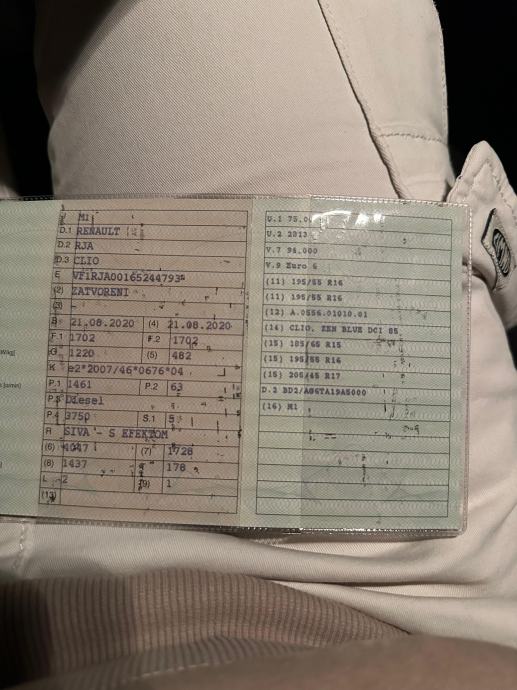 J M1
D.1 RENAULT
D.2 RJA
D.3 CLIO
E VF1RJA00165244793
(2) ZATVORENI
(3) -
B 21.08.2020 (4) 21.08.2020
F.1 1702 F.2 1702
G 1220 (5) 482
K e2*2007/46*0676*04
P.1 1461 P.2 63
P.3 Diesel
P.4 3750 S.1 5
R SIVA - S EFEKTOM
(6) 4047 (7) 1728
(8) 1437 178
L 2 (9) 1
(13)
U.1 75.0
U.2 2813
V.7 94.000
V.9 Euro 6
(11) 195/55 R16
(11) 195/55 R16
(12) A.0556.01010.01
(14) CLIO, ZEN BLUE DCI 85
(15) 185/65 R15
(15) 195/55 R16
(15) 205/45 R17
D.2 BD2/AG6TA19A5000
(16) M1